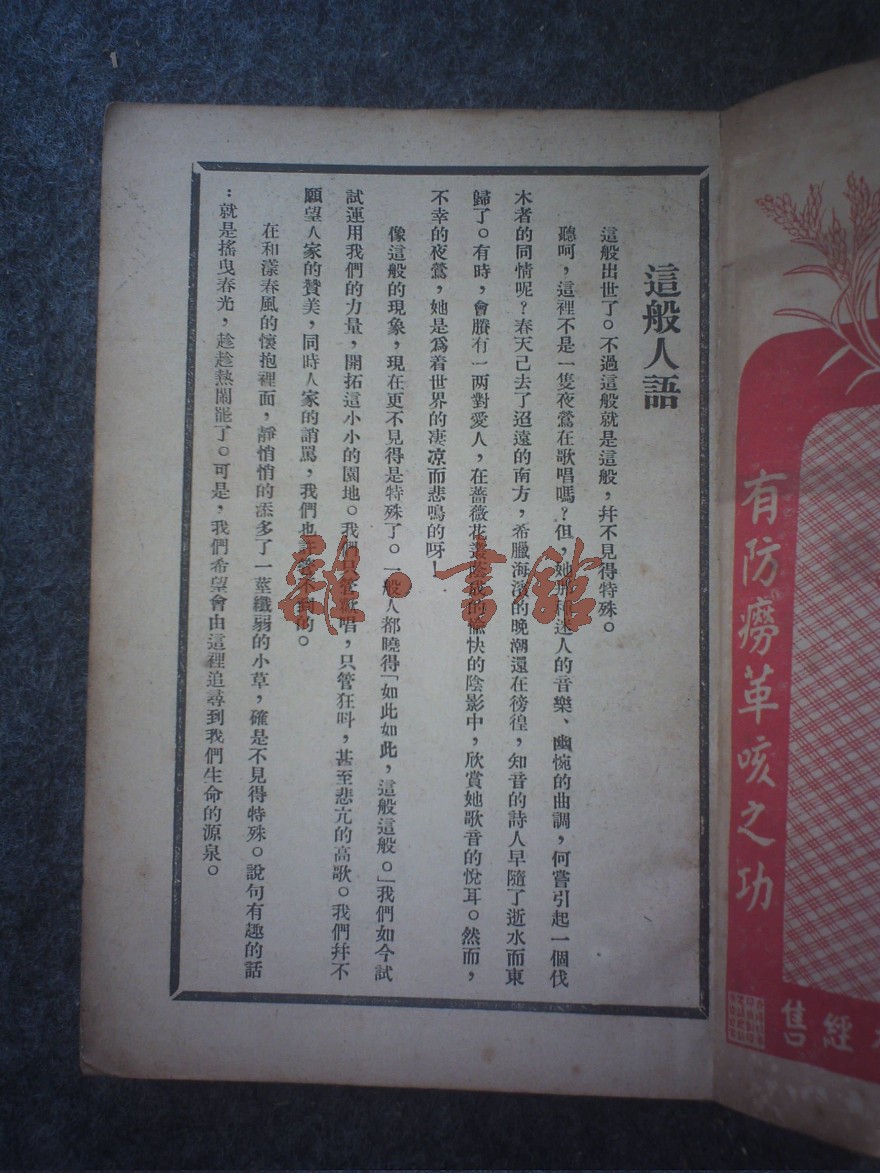 有防癆革咳之功
經售
這般人語
這般出世了。不過這般就是這般，幷不見得特殊。
聽呵，這裡不是一隻夜鶯在歌唱嗎？但，她那和迷人的音樂、幽惋的曲調，何嘗引起一個伐
木者的同情呢？春天已去了迢遠的南方，希臘海濱的晚潮還在徬徨，知音的詩人早隨了逝水而東
歸了。有時，會賸有一两對愛人，在薔薇花叢蔭成的愉快的陰影中，欣賞她歌音的悅耳。然而，
不幸的夜鶯，她是爲着世界的凄凉而悲鳴的呀！
像這般的現象，現在更不見得是特殊了。一般人都曉得「如此如此，這般這般。」我們如今試
試運用我們的力量，開拓這小小的園地。我們只管歌唱，只管狂呌，甚至悲亢的高歌。我們幷不
願望人家的贊美，同時人家的誚駡，我們也許管不到的。
在和漾春風的懷抱裡面，靜悄悄的添多了一莖纖弱的小草，確是不見得特殊。說句有趣的話
：就是搖曳春光，趁趁熱鬧罷了。可是，我們希望會由這裡追尋到我們生命的源泉。
雜·書館